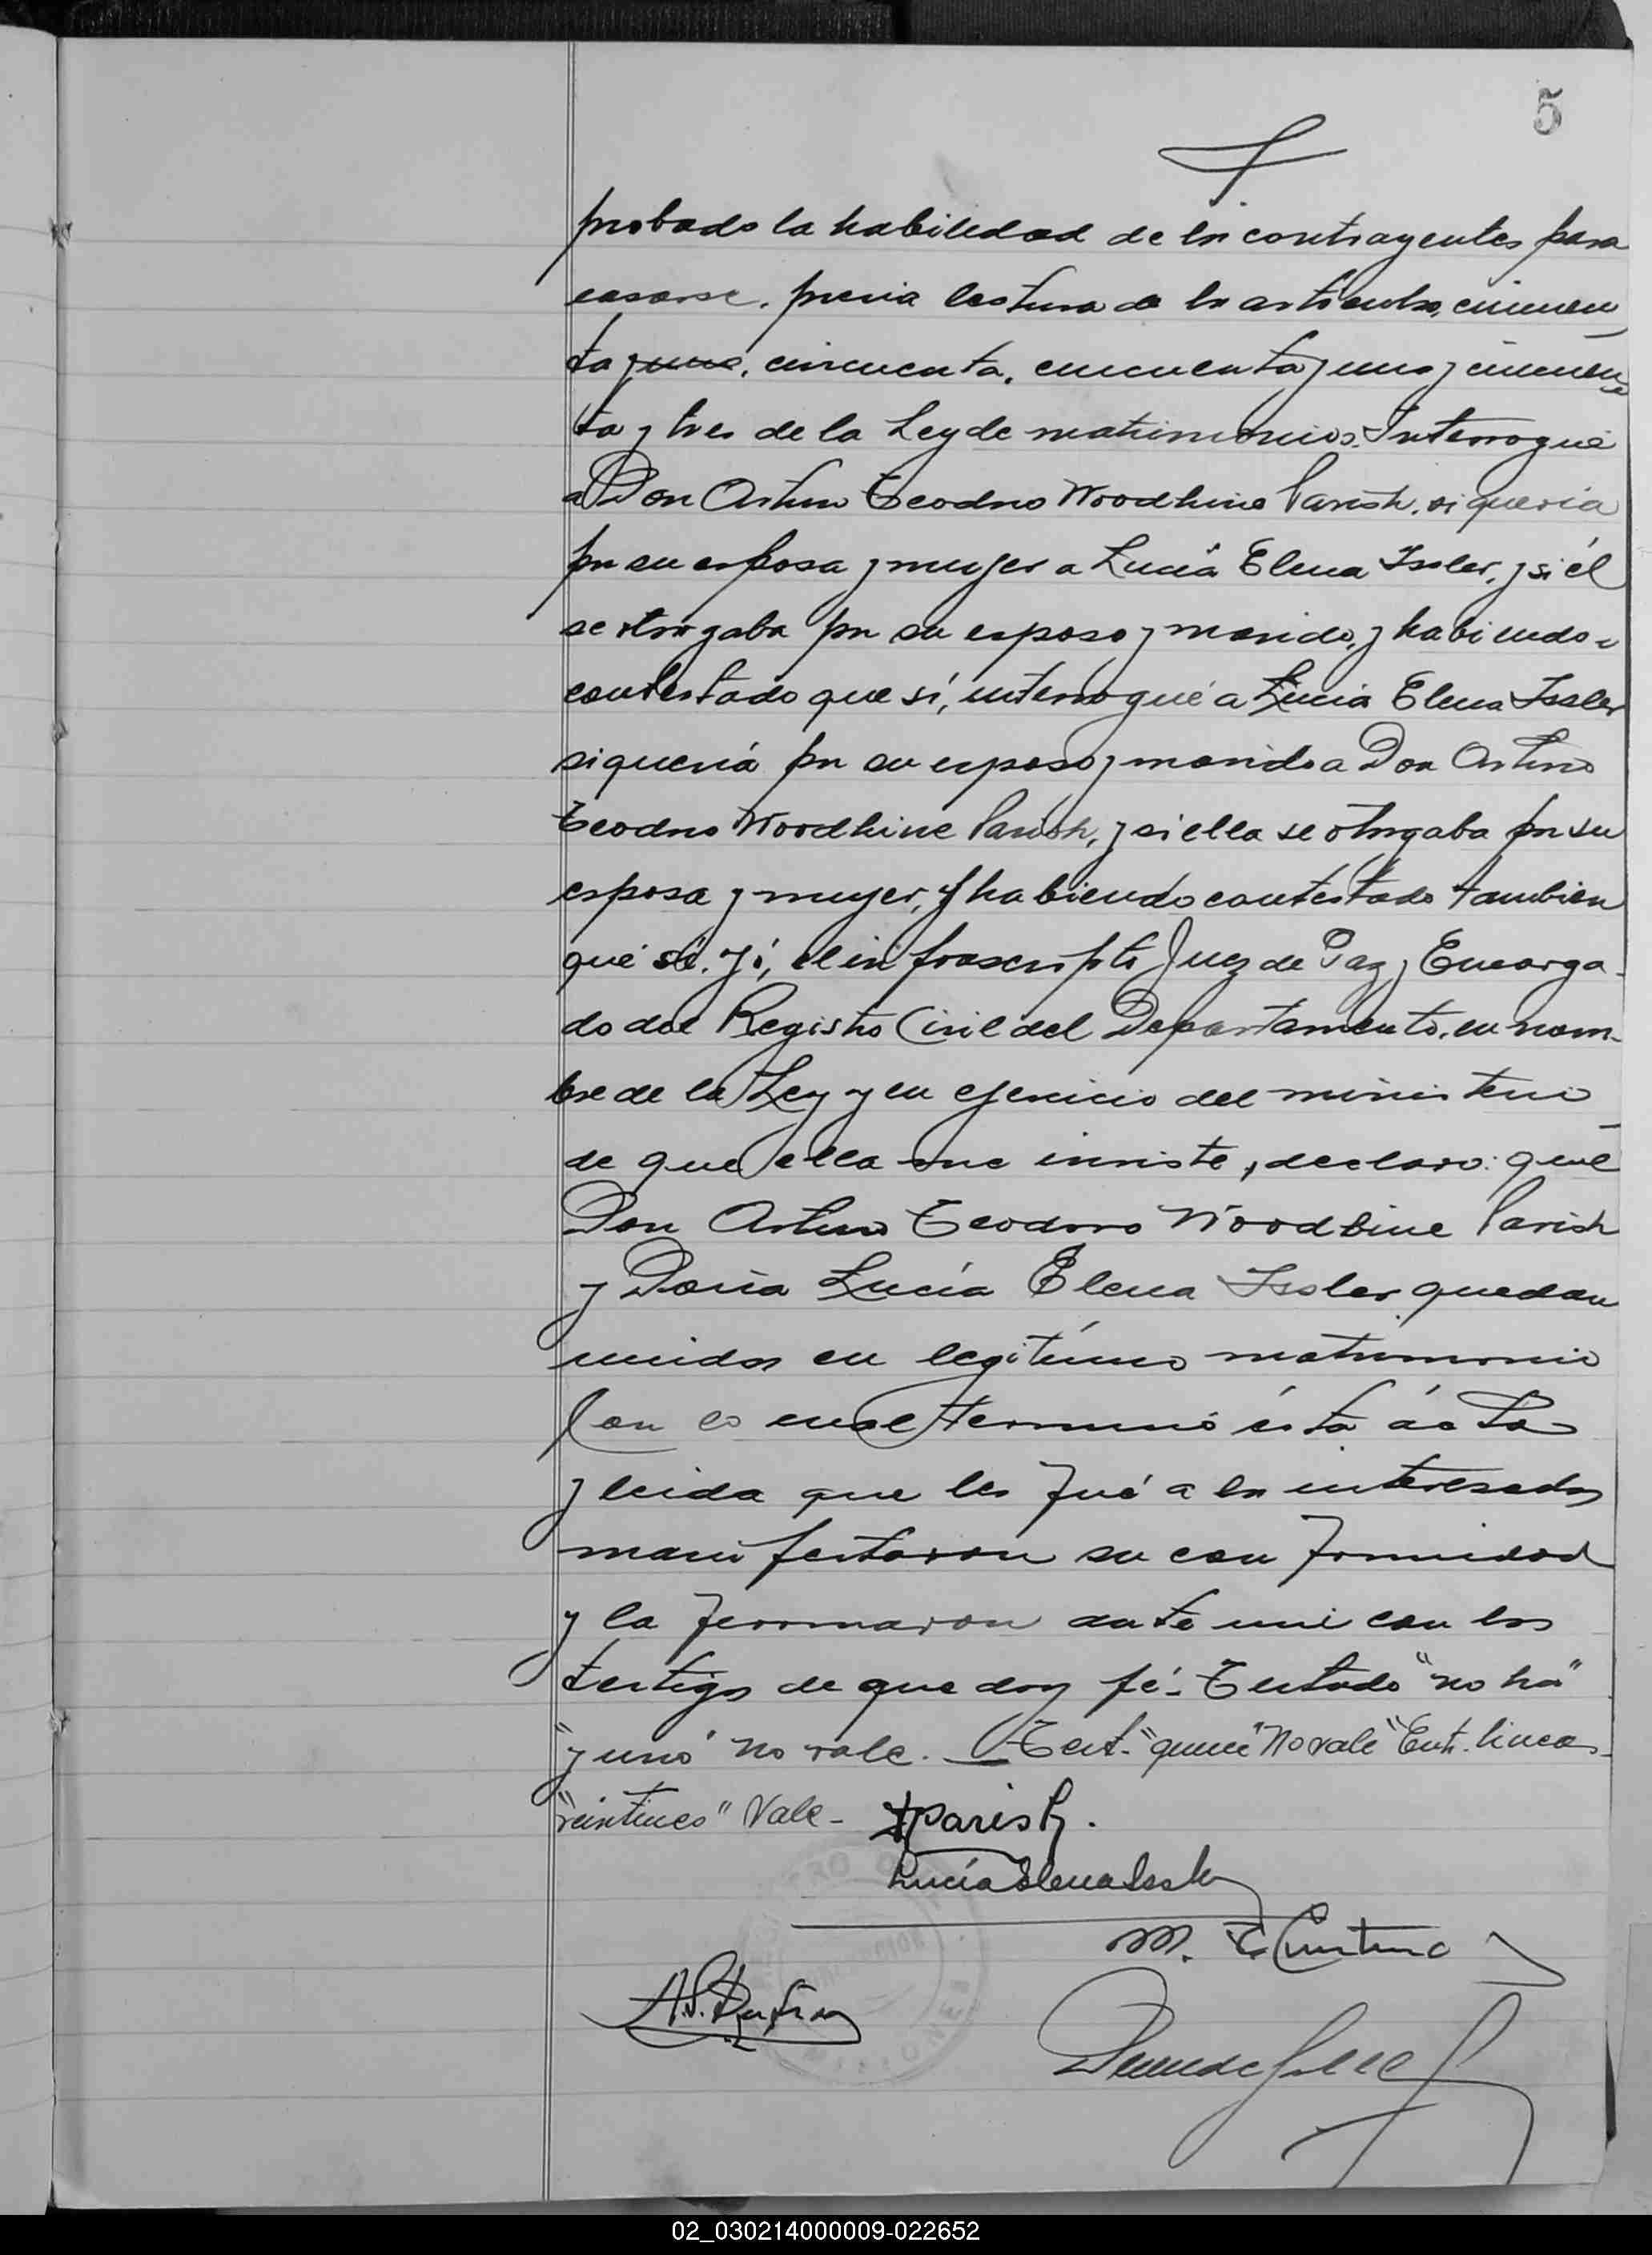 5
probado la habilidad de los contrayentes para
casarse, previa lectura de los articulos, cincuen
ta y uno, cincuenta, cincuenta y uno y cincuen
ta y tres de la Ley de matrimonios. Interrogué
a Don Arturo Teodoro Woodbine Parish, si queria
por su esposa y mujer a Lucía Elena Issler, y si él
se otorgaba por su esposo y marido, y habiendo
contestado que sí, interrogué a Lucia Elena Issler
si quería por su esposo y marido a Don Arturo
Teodoro Woodbine Parish, y si ella se otorgaba por su
esposa y mujer, y habiendo contestado tambien
que sí. Yó, el infrascripto Juez de Paz y Encarga-
do del Registro Civil del Departamento, en nom-
bre de la Ley y en ejercicio del ministerio
de que ella me inviste, declaro: que
Don Arturo Teodoro Woodbine Parish
y Doña Lucía Elena Issler quedan
unidos en legítimo matrimonio
Con lo cual terminó ésta ácta
y leida que les fué a los interesados
manifestaron su conformidad
y la firmaron ante mi con los
testigos de que doy fé.- Testado "no ha"
"y uno" no vale. - Test. "quince" No vale "Entr. lineas
"veintinco" Vale -
Parish.
Lucía Elena Issler
M.
A.
02_030214000009-022652